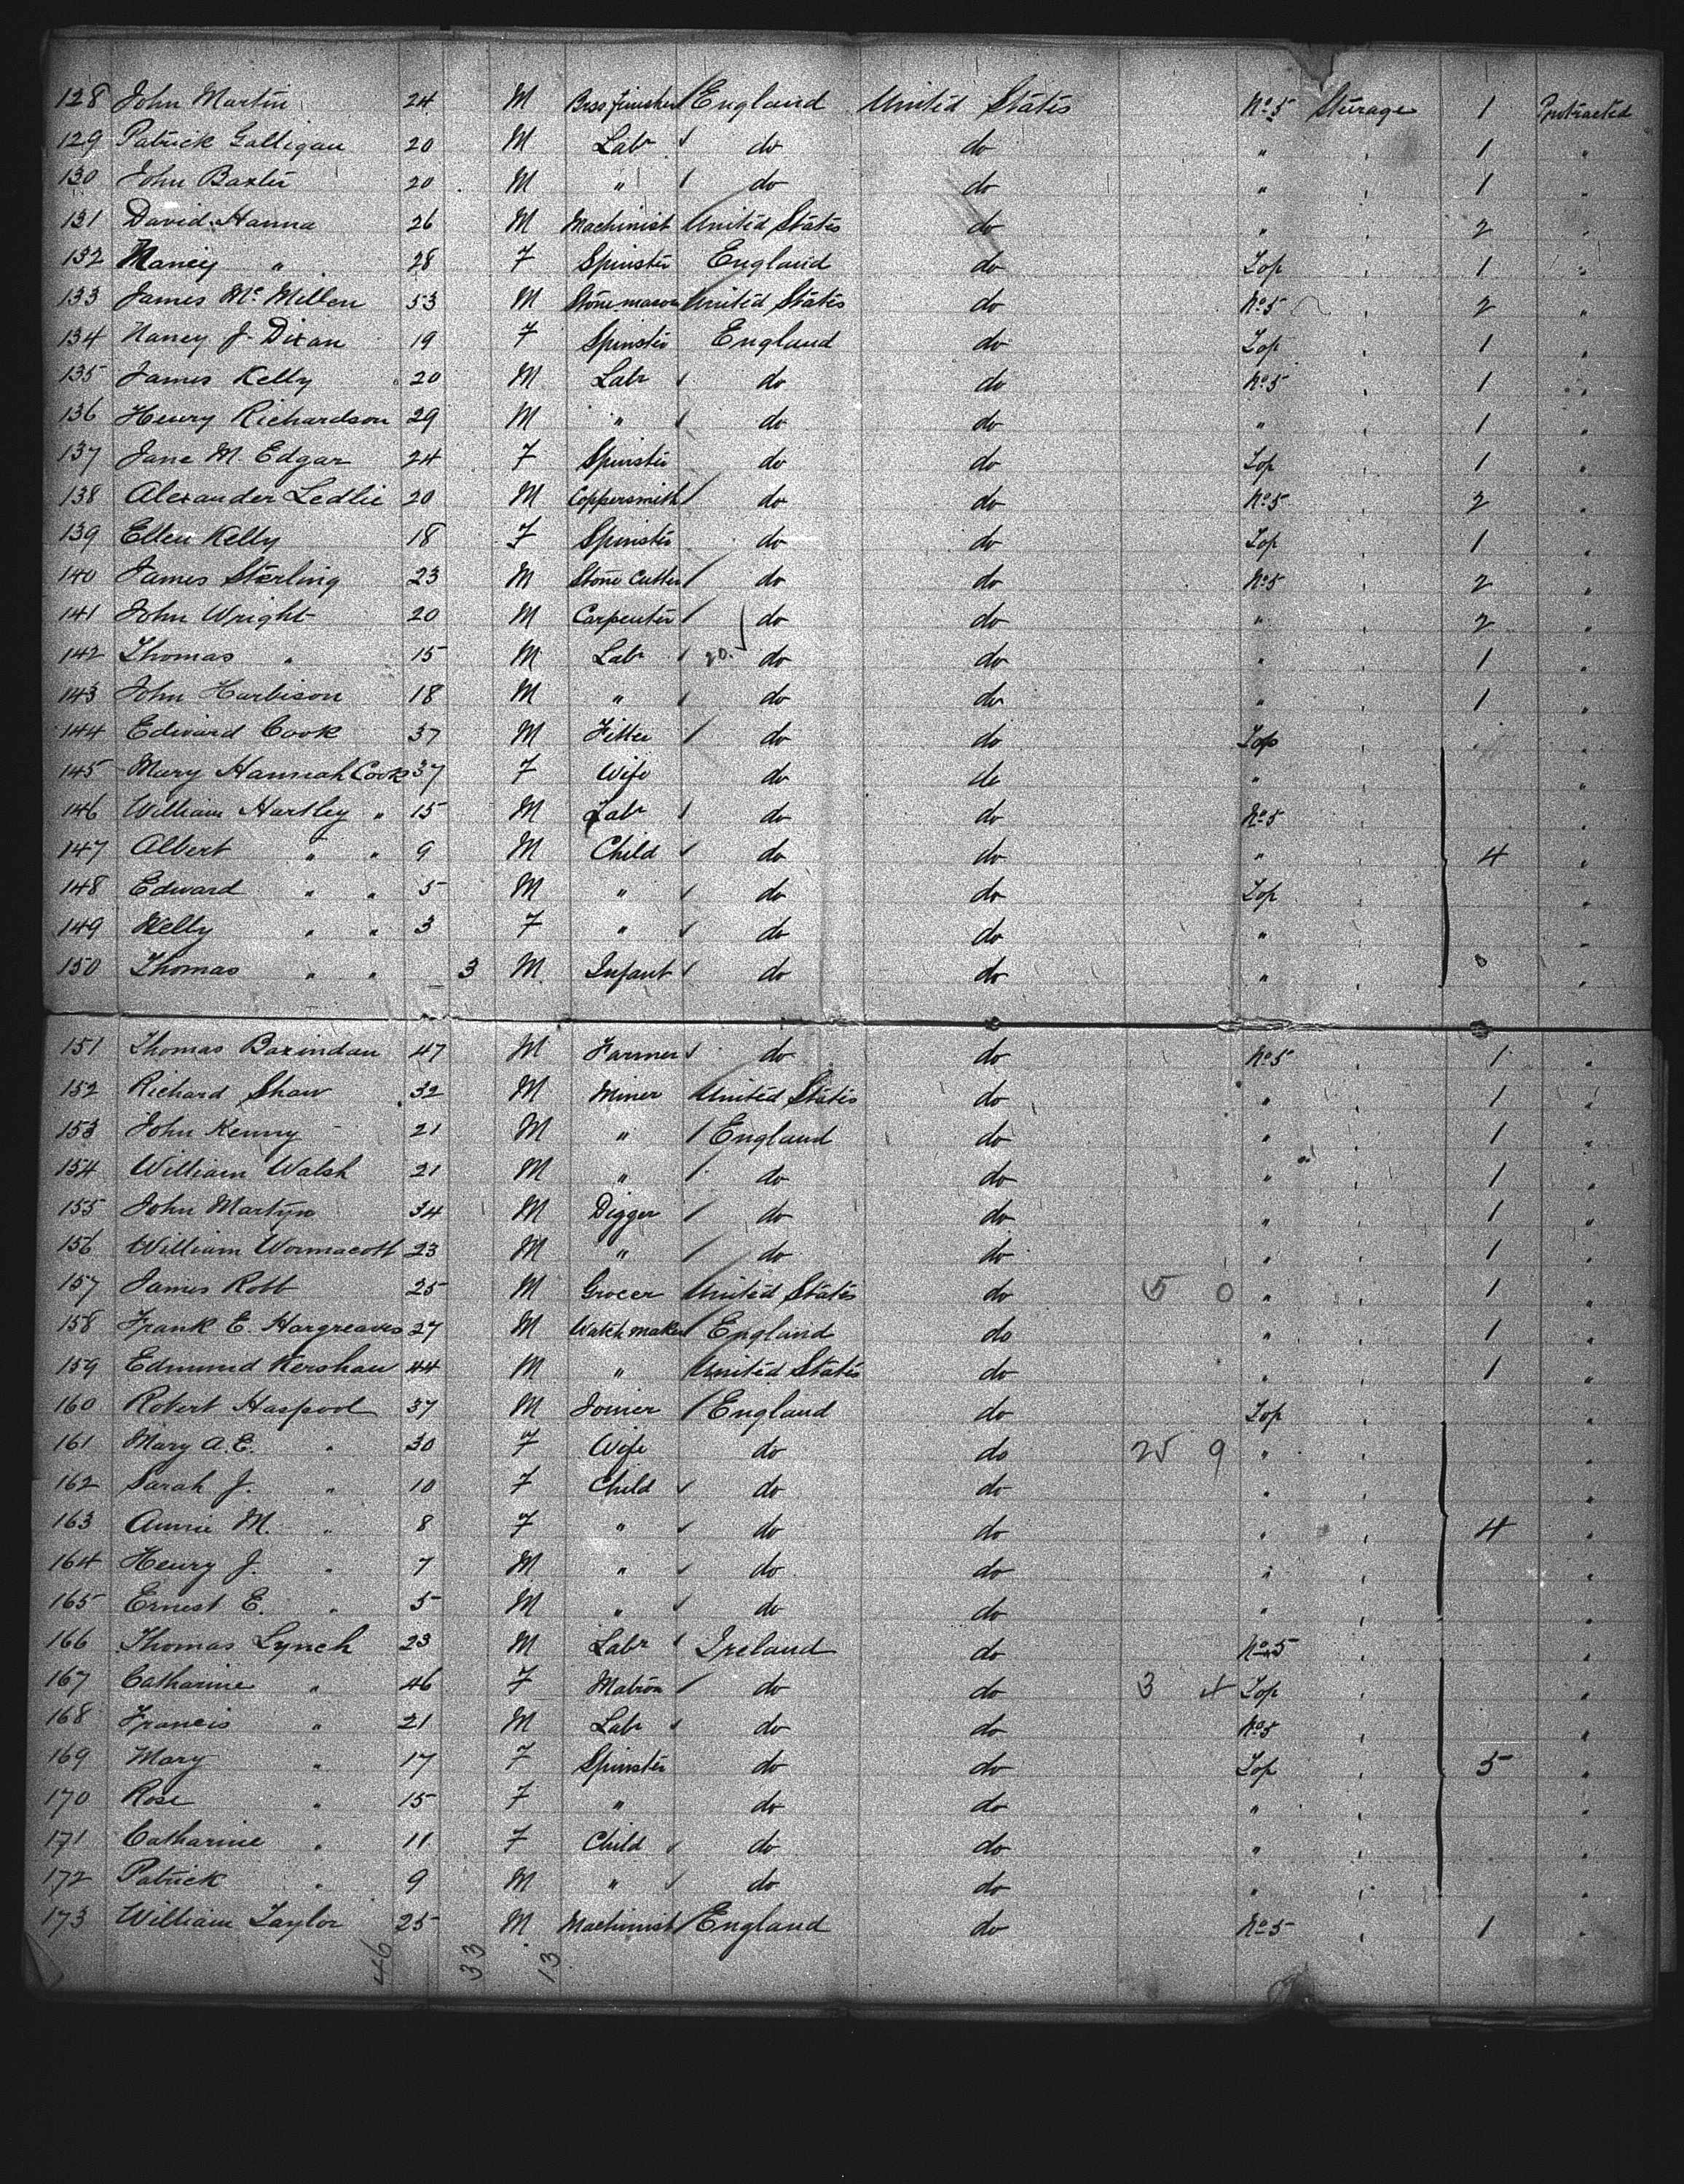 128 John Martin 24 M Brss finisher England United States No 5 Sturage 1 Protracted
129 Patrick Galligan 20 M Labr do do " " 1 "
130 John Baxter 20 M " do do " " 1 "
131 David Hanna 26 M Machinist United States do " " 2 "
132 Nancy " 28 F Spinster England do Top " 1 "
133 James Mc Millen 53 M Stone mason United States do No 5 " 2 "
134 Nancy J. Dixon 19 F Spinster England do Top " 1 "
135 James Kelly 20 M Labr do do No 5 " 1 "
136 Henry Richardson 29 M " do do " " 1 "
137 Jane M. Edgar 24 F Spinster do do Top " 1 "
138 Alexander Ledlie 20 M Coppersmith do do No 5 " 2 "
139 Ellen Kelly 18 F Spinster do do Top " 1 "
140 James Sterling 23 M Stone Cutter do do No 5 " 2 "
141 John Wright 20 M Carpenter do do " " 2 "
142 Thomas " 15 M Labr 20. do do " " 1 "
143 John Harbison 18 M " do do " " 1 "
144 Edward Cook 37 M Fitter do do Top " "
145 Mary Hannah Cook 37 F Wife do do " " "
146 William Hartley " 15 M Labr do do No 5 " "
147 Albert " " 9 M Child do do " " 4 "
148 Edward " " 5 M " do do Top " "
149 Nelly " " 3 F " do do " " "
150 Thomas " " 3 M Infant do do " " "
151 Thomas Baxindan 47 M Farmer do do No 5 " 1 "
152 Richard Shaw 32 M Miner United States do " " 1 "
153 John Kenny 21 M " England do " " 1 "
154 William Walsh 21 M " do do " " 1 "
155 John Martyn 34 M Digger do do " " 1 "
156 William Wormacott 23 M " do do " " 1 "
157 James Robb 25 M Grocer United States do 5 0 " " 1 "
158 Frank E. Hargreaves 27 M Watch maker England do " " 1 "
159 Edmund Kershaw 44 M " United States do " " 1 "
160 Robert Haspool 37 M Joiner England do Top " "
161 Mary A.E. " 30 F Wife do do 25 9 " " "
162 Sarah J. " 10 F Child do do " " "
163 Annie M. " 8 F " do do " " 4 "
164 Henry J. " 7 M " do do " " "
165 Ernest E. " 5 M " do do " " "
166 Thomas Lynch 23 M Labr Ireland do No 5 " "
167 Catharine " 46 F Matron do do 3 4 Top " "
168 Francis " 21 M Labr do do No 5 " "
169 Mary " 17 F Spinster do do Top " 5 "
170 Rose " 15 F " do do " " "
171 Catharine " 11 F Child do do " " "
172 Patrick " 9 M " do do " " "
173 William Taylor 25 M Machinist England do No 5 " 1 "
46 33 13